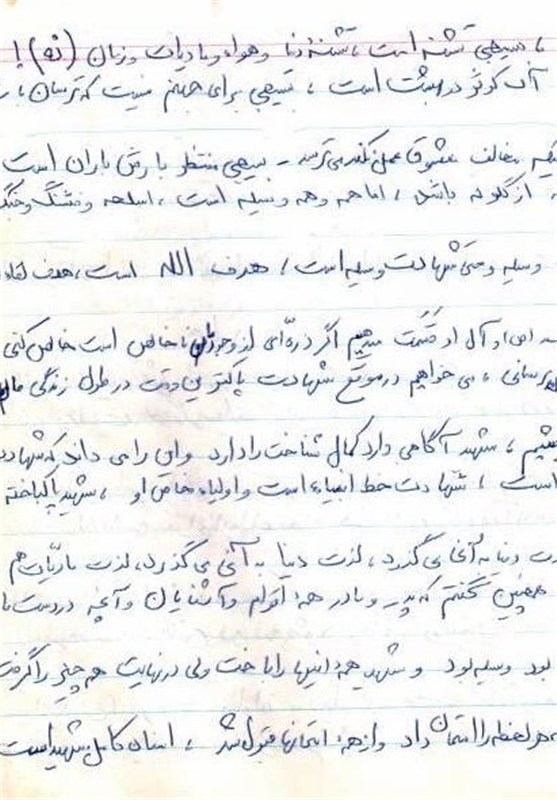 ، بسیجی تشنه است ، تشنهٔ دنیا و هواء و مادیات و زمان (نه) !
آن کوثر در بهشت است ، بسیجی برای جهنم نیست که ترسان با
مخالف عشوق عمل نکند می ترسد - بسیجی منتظر بارش باران است
از گلوله باشد ، اما همه وهمه وسیله است ، اسلحه و فشنگ و جنگ
وسیله و حتی شهادت وسیله است ، هدف الله است ، هدف لقاء
او قسمت میدهیم اگر ذره ای از وجود نا خالص است خالص کنی
برسانی ، می خواهیم در موقع شهادت پاکترین وقت در طول زندگی
باشیم ، شهید آگاهی دارد کمال شناخت را دارد و این را می داند که شهادت
است ، شهادت خط انبیاء است و اولیاء خاص او ، شهید پاکباخته
دنیا به آنی می گذرد ، لذت دنیا به آنی می گذرد ، لذت مادیات هم
همچنین گفتم که پدر و مادر همهٔ اقوام و آشنایان و آنچه در دست
بود وسیله بود و شهید همهٔ اینها را باخت ولی در نهایت همه چیز را گرفت
هر لحظه را امتحان داد و از همهٔ امتحانها قبول شد ، انسان کامل شهید است